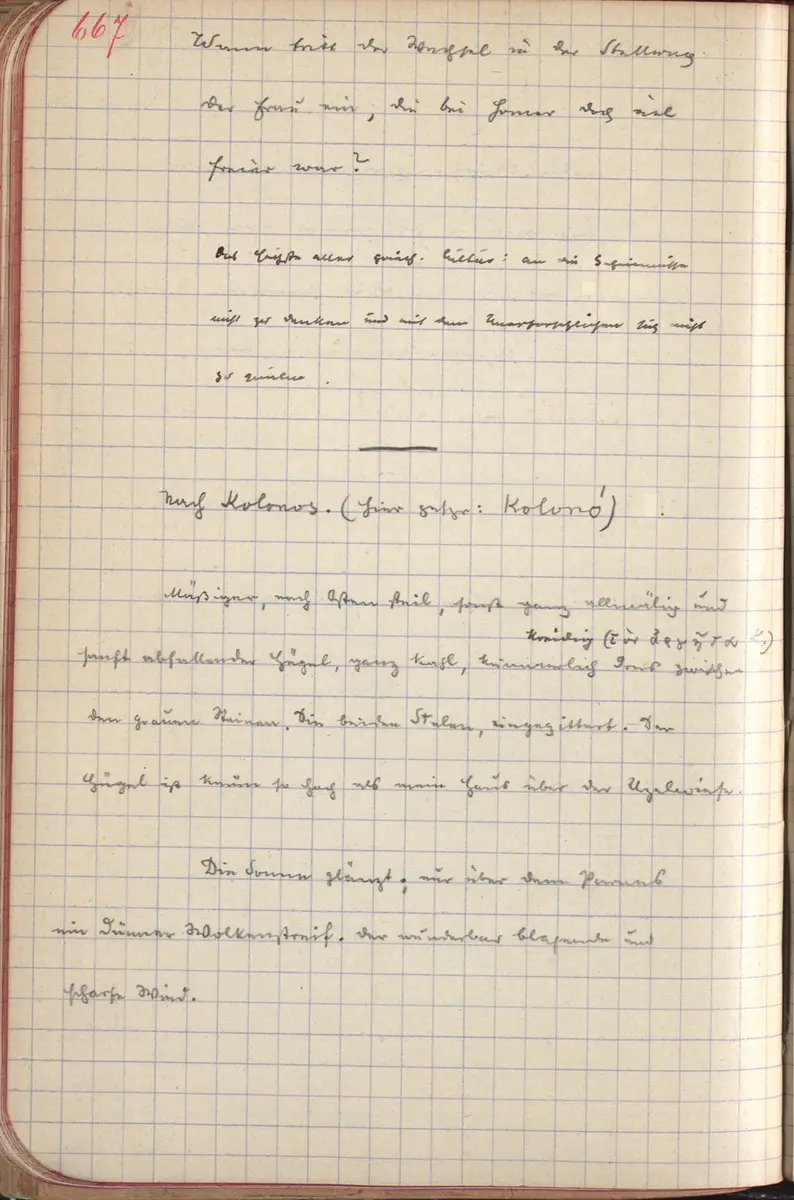 667
Wann tritt der Wechsel in der Stellung
der Frau ein, die bei Homer doch viel
freier war?
Das Höchste aller griech. Cultur: an die Geheimnisse
nicht zu denken und mit dem Unerforschlichen sich nicht
zu quälen.
Nach Kolonos. (hier gespr: Kolonó)
Mäßiger, nach Osten steil, sonst ganz allmälig und
kreidig (τὸν ἀργῆτα Κ.)
sanft abfallender Hügel, ganz kahl, kümmerlich Gras zwischen
den grauen Steinen. Die beiden Stelen, eingegittert. Der
Hügel ist kaum so hoch als mein Haus über der Uzelwiese.
Die Sonne glänzt; nur über dem Parnes
ein dünner Wolkenstreif. Der wunderbar blasende und
scharfe Wind.